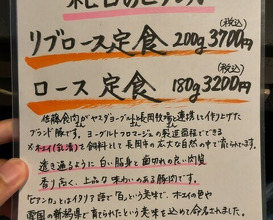 (税込)
リブロース定食 200g 3700円
(税込)
ロース 定食 180g 3200円
佐藤食肉がヤスダヨーグルトと長岡牧場と連携しイチ上げた
ブランド豚です。ヨーグルトフロマージュの製造過程でできる
ホエイ(乳清)を飼料として長岡市の広大な自然の中で育てられます。
透き通るように白い脂身と歯切れの良い肉質
香り高く、上品な味わいのある豚肉です。
「ビアンカ」とはイタリア語で「白」という意味で、ホエイの色や
雪国の新潟県で育てられたという意味を込めて命名されました。